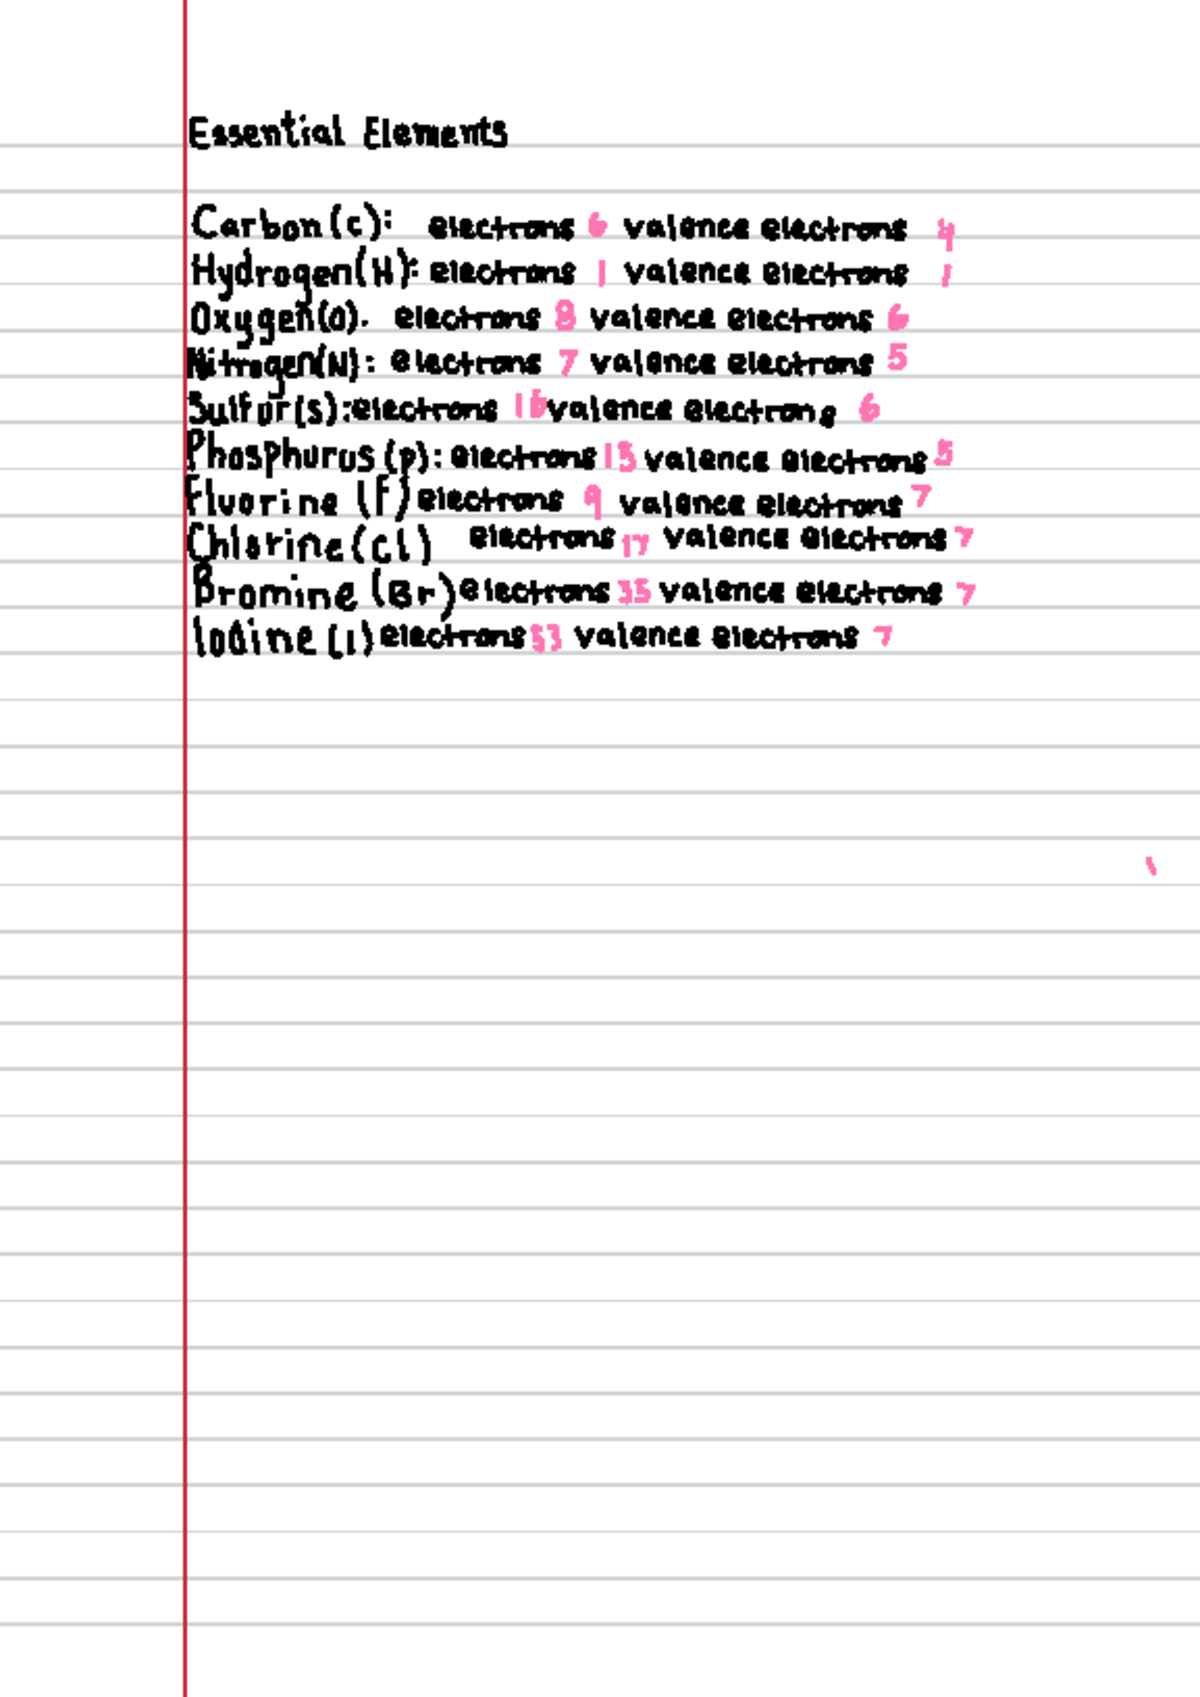 Essential Elements
Carbon(c): electrons 6 valence electrons 4
Hydrogen(H): electrons 1 valence electrons 1
Oxygen(O). electrons 8 valence electrons 6
Nitrogen(N): electrons 7 valence electrons 5
Sulfur(s):electrons 16 valence electrons 6
Phosphurus(p): electrons 15 valence electrons 5
Fluorine (F) electrons 9 valence electrons 7
Chlorine(cl) electrons 17 valence electrons 7
Bromine (Br) electrons 35 valence electrons 7
Iodine (I) electrons 53 valence electrons 7